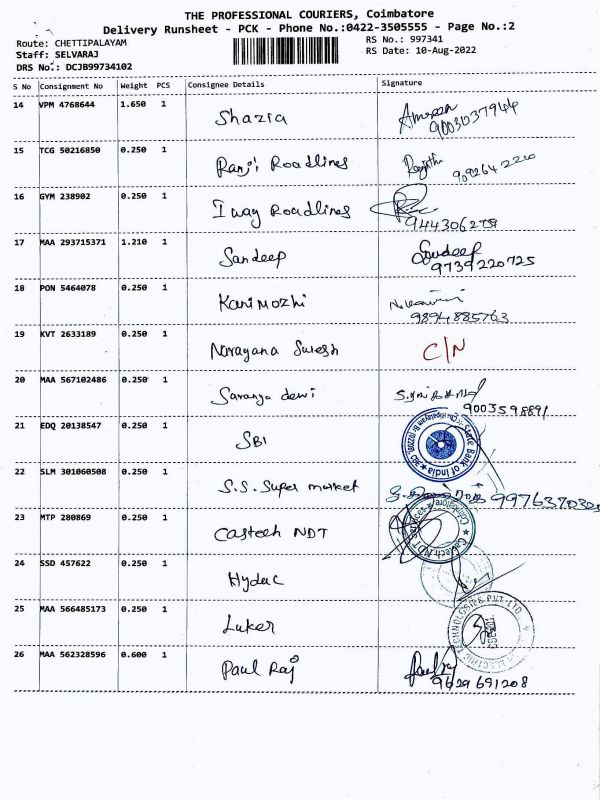 THE PROFESSIONAL COURIERS, Coimbatore
Delivery Runsheet - PCK - Phone No.:0422-3505555 - Page No.:2
Route: CHETTIPALAYAM
RS No.: 997341
Staff: SELVARAJ
RS Date: 10-Aug-2022
DRS No.: DCJB99734102
S No Consignment No Weight PCS Consignee Details Signature
14 VPM 4768644 1.650 1 Shazia
9003037944
15 TCG 50216850 0.250 1 Ranji Roadlines Ranjith
909264 2220
16 GYM 238902 0.250 1 I way Roadlines
17 MAA 293715371 1.210 1 Sandeep Sandeep
9739220725
18 PON 5464078 0.250 1 Kanimozhi
9894885763
19 KVT 2633189 0.250 1 Narayana Suresh C/N
20 MAA 567102486 0.250 1 Saranya devi
9003598891
21 EDQ 20138547 0.250 1 SBI State Bank of India
22 SLM 301060508 0.250 1 S.S. Super market
23 MTP 280869 0.250 1 Castech NDT
24 SSD 457622 0.250 1 Hydac
25 MAA 566485173 0.250 1 Luker
26 MAA 562328596 0.600 1 Paul Raj Paul Raj
9629691208